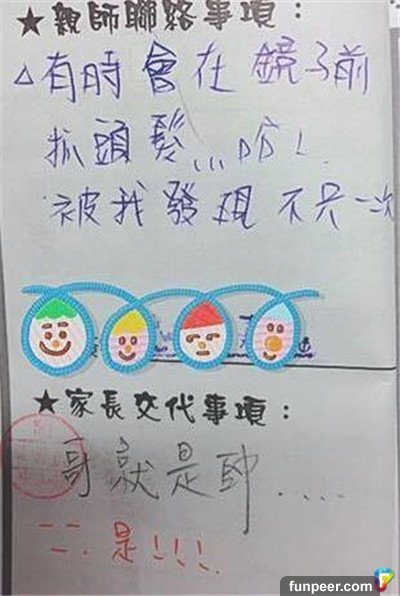 ★親師聯絡事項：
△有時會在鏡子前
抓頭髮...哈！
被我發現不只一次
★家長交代事項：
哥就是帥....
二二.是!!!
funpeer.com